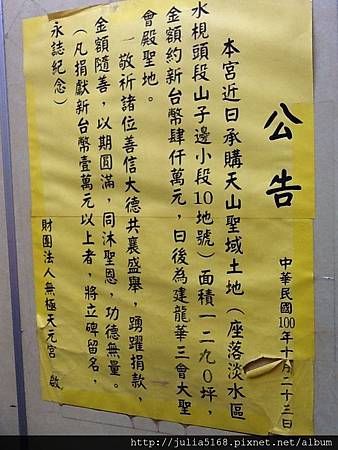 公告
中華民國100年十月二十三日
本宮近日承購天山聖域土地（座落淡水區
水梘頭段山子邊小段10地號）面積一二九0坪，
金額約新台幣肆仟萬元，日後為建龍華三會大聖
會殿聖地。
一敬祈諸位善信大德共襄盛舉，踴躍捐款，
金額隨善，以期圓滿，同沐聖恩，功德無量。
（凡捐獻新台幣壹萬元以上者，將立碑留名，
永誌紀念）
財團法人無極天元宮 啟
http://julia5168.pixnet.net/album